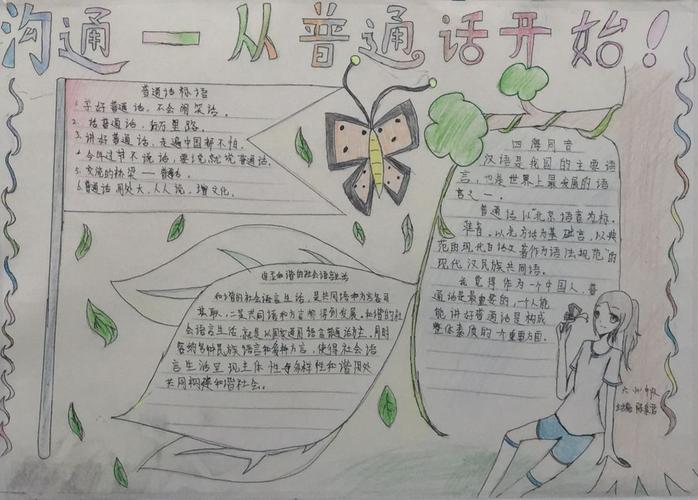 沟通一从普通话开始！
普通话标语
1. 学好普通话，不会闹笑话。
2. 话普通话，行万里路。
3. 讲好普通话，走遍中国都不怕。
4. 今年过节不说话，要说就说普通话。
5. 交流的桥梁——普通话
6. 普通话用处大，人人说，增文化。
和谐的社会语言生活
和谐的社会语言生活，是共同语和方言各司
其职，二是共同语和方言都得到发展。和谐的社
会语言生活就是以国家通用语言普通话为主，同时
各的多种民族语言和各种方言，使得社会语
言生活呈现主体性与多样性和谐同处
共同构建和谐社会。
四海同音
汉语是我国的主要语
言，也是世界上最发展的语
言之一。
普通话以“北京语音为标
准音，以北方话为基础言，以典
范的现代白话文著作为语法规范”的
现代汉民族共同语。
我觉得作为一个中国人，普
通话是最重要的，一个人能
能讲好普通话是构成
整体素质的一个重要方面。